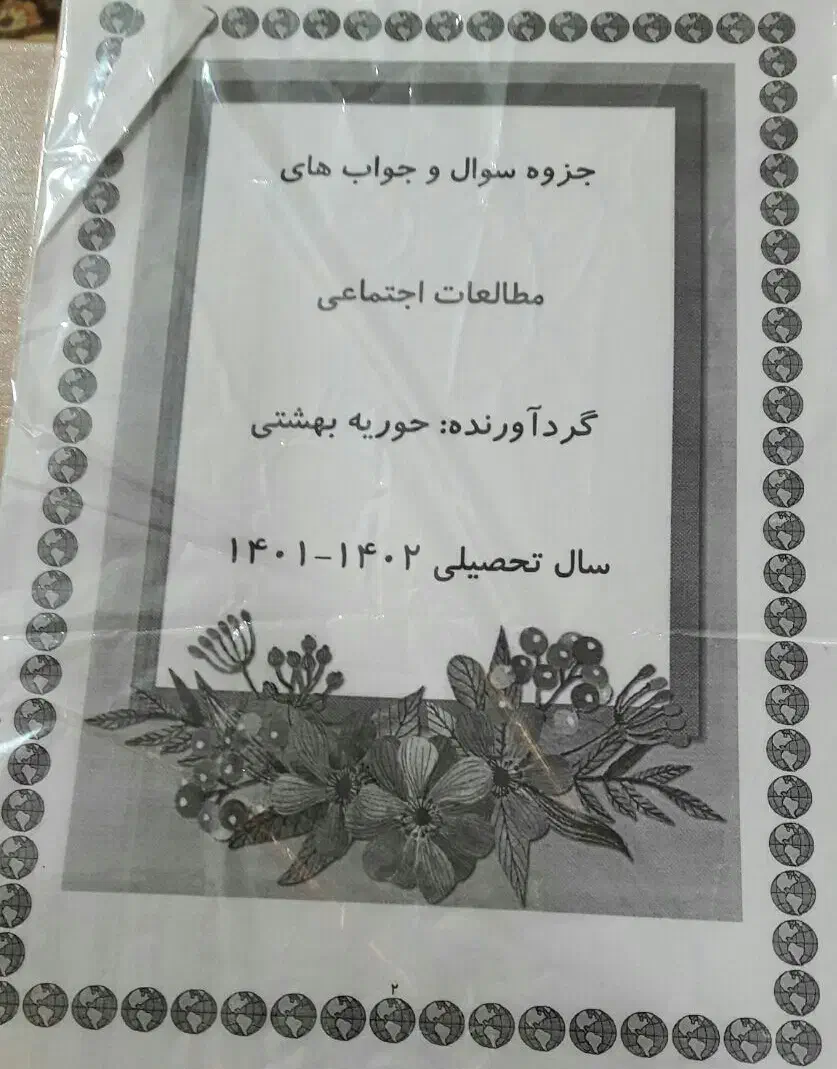 جزوه سوال و جواب های
مطالعات اجتماعی
گردآورنده: حوریه بهشتی
سال تحصیلی ۱۴۰۲-۱۴۰۱
۲